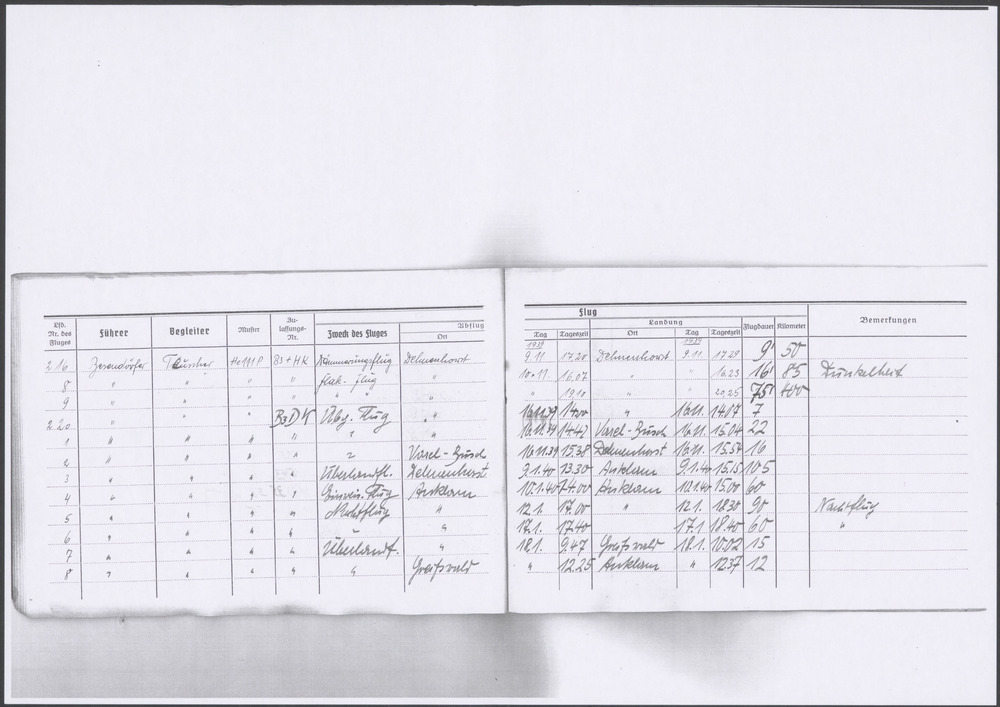 Lfd. Nr. des Fluges Führer Begleiter Muster Zu- lassungs- Nr. Zweck des Fluges Abflug Ort
Flug
Tag Tageszeit Landung Ort Tag Tageszeit Flugdauer Kilometer Bemerkungen
1939 1939
216 " He111P B3+HK Delmenhorst 9.11. 17.20 Delmenhorst 9.11. 17.29 9' 50
8 " " " " flak-flug " 10.11. 16.07 " " 16.23 16' 85 Dunkelheit
9 " " " " " " " 19.10 " " 20.25 75' 400
220 " " " Flug " 16.11.39 14.00 " 16.11. 14.07 7
1 " " " " " " 16.11.39 14.42 Varel-Busch 16.11. 15.04 22
2 " " " " " Varel-Busch 16.11.39 15.38 Delmenhorst 16.11. 15.54 16
3 " " " " Überlandfl. Delmenhorst 9.1.40 13.30 Anklam 9.1.40 15.15 105
4 " " " " Flug Anklam 10.1.40 14.00 Anklam 10.1.40 15.00 60
5 " " " " Nachtflug " 12.1. 17.00 " 12.1. 18.30 90 Nachtflug
6 " " " " " " 17.1. 17.40 17.1 18.40 60 "
7 " " " " Überlandf. " 18.1. 9.47 Greifswald 18.1. 10.02 15
8 " " " " " Greifswald " 12.25 Anklam " 12.37 12